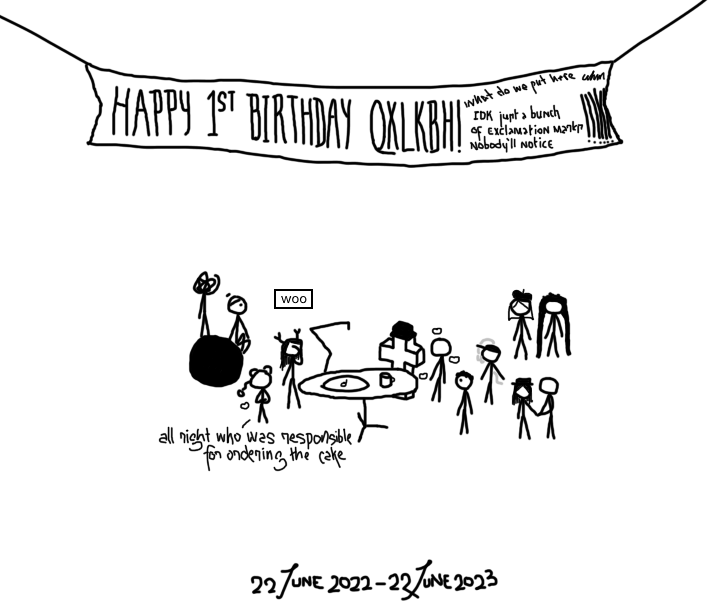 HAPPY 1ST BIRTHDAY QXLKBH!
what do we put here uhm
IDK just a bunch
of exclamation marks
Nobody'll notice
!!!!!!
woo
all right who was responsible
for ordering the cake
22 June 2022 - 22 June 2023